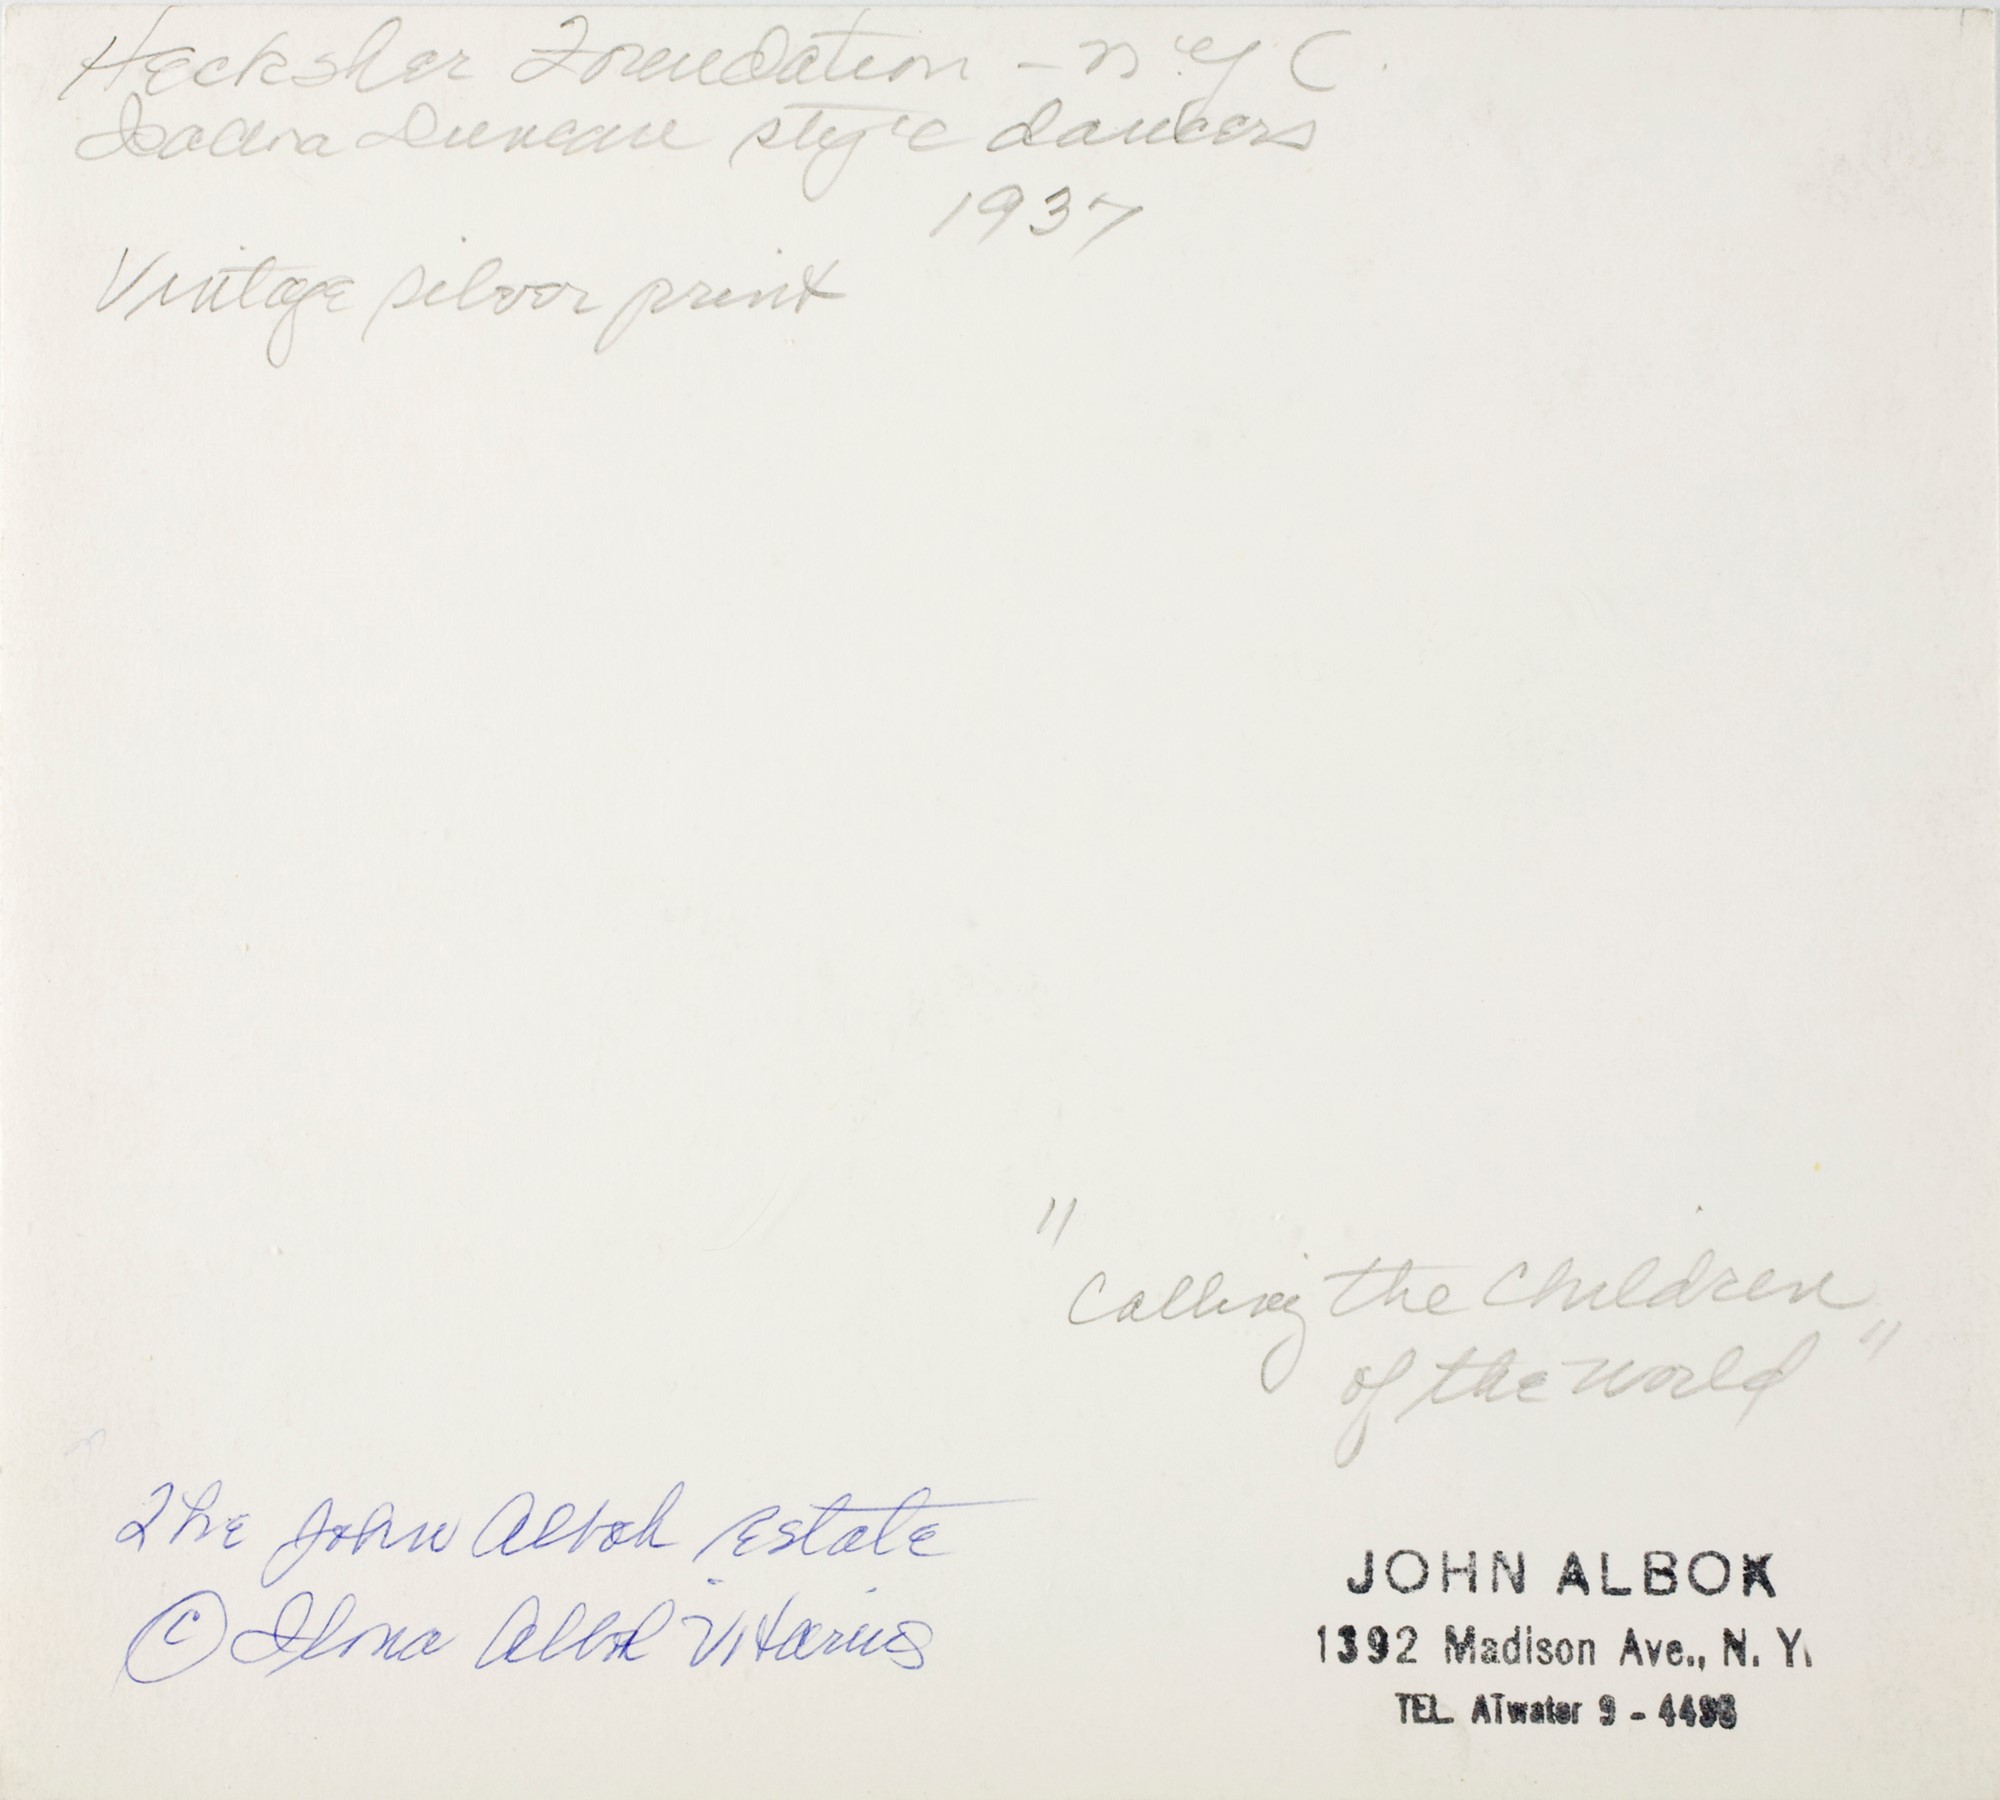 Hecksher Foundation - N.Y.C.
Isadora Duncan style dancers
1937
Vintage silver print
"Calling the Children
of the World"
The John Albok Estate
© Ilona Albok Vitarius
JOHN ALBOK
1392 Madison Ave., N. Y.
TEL. ATwater 9 -